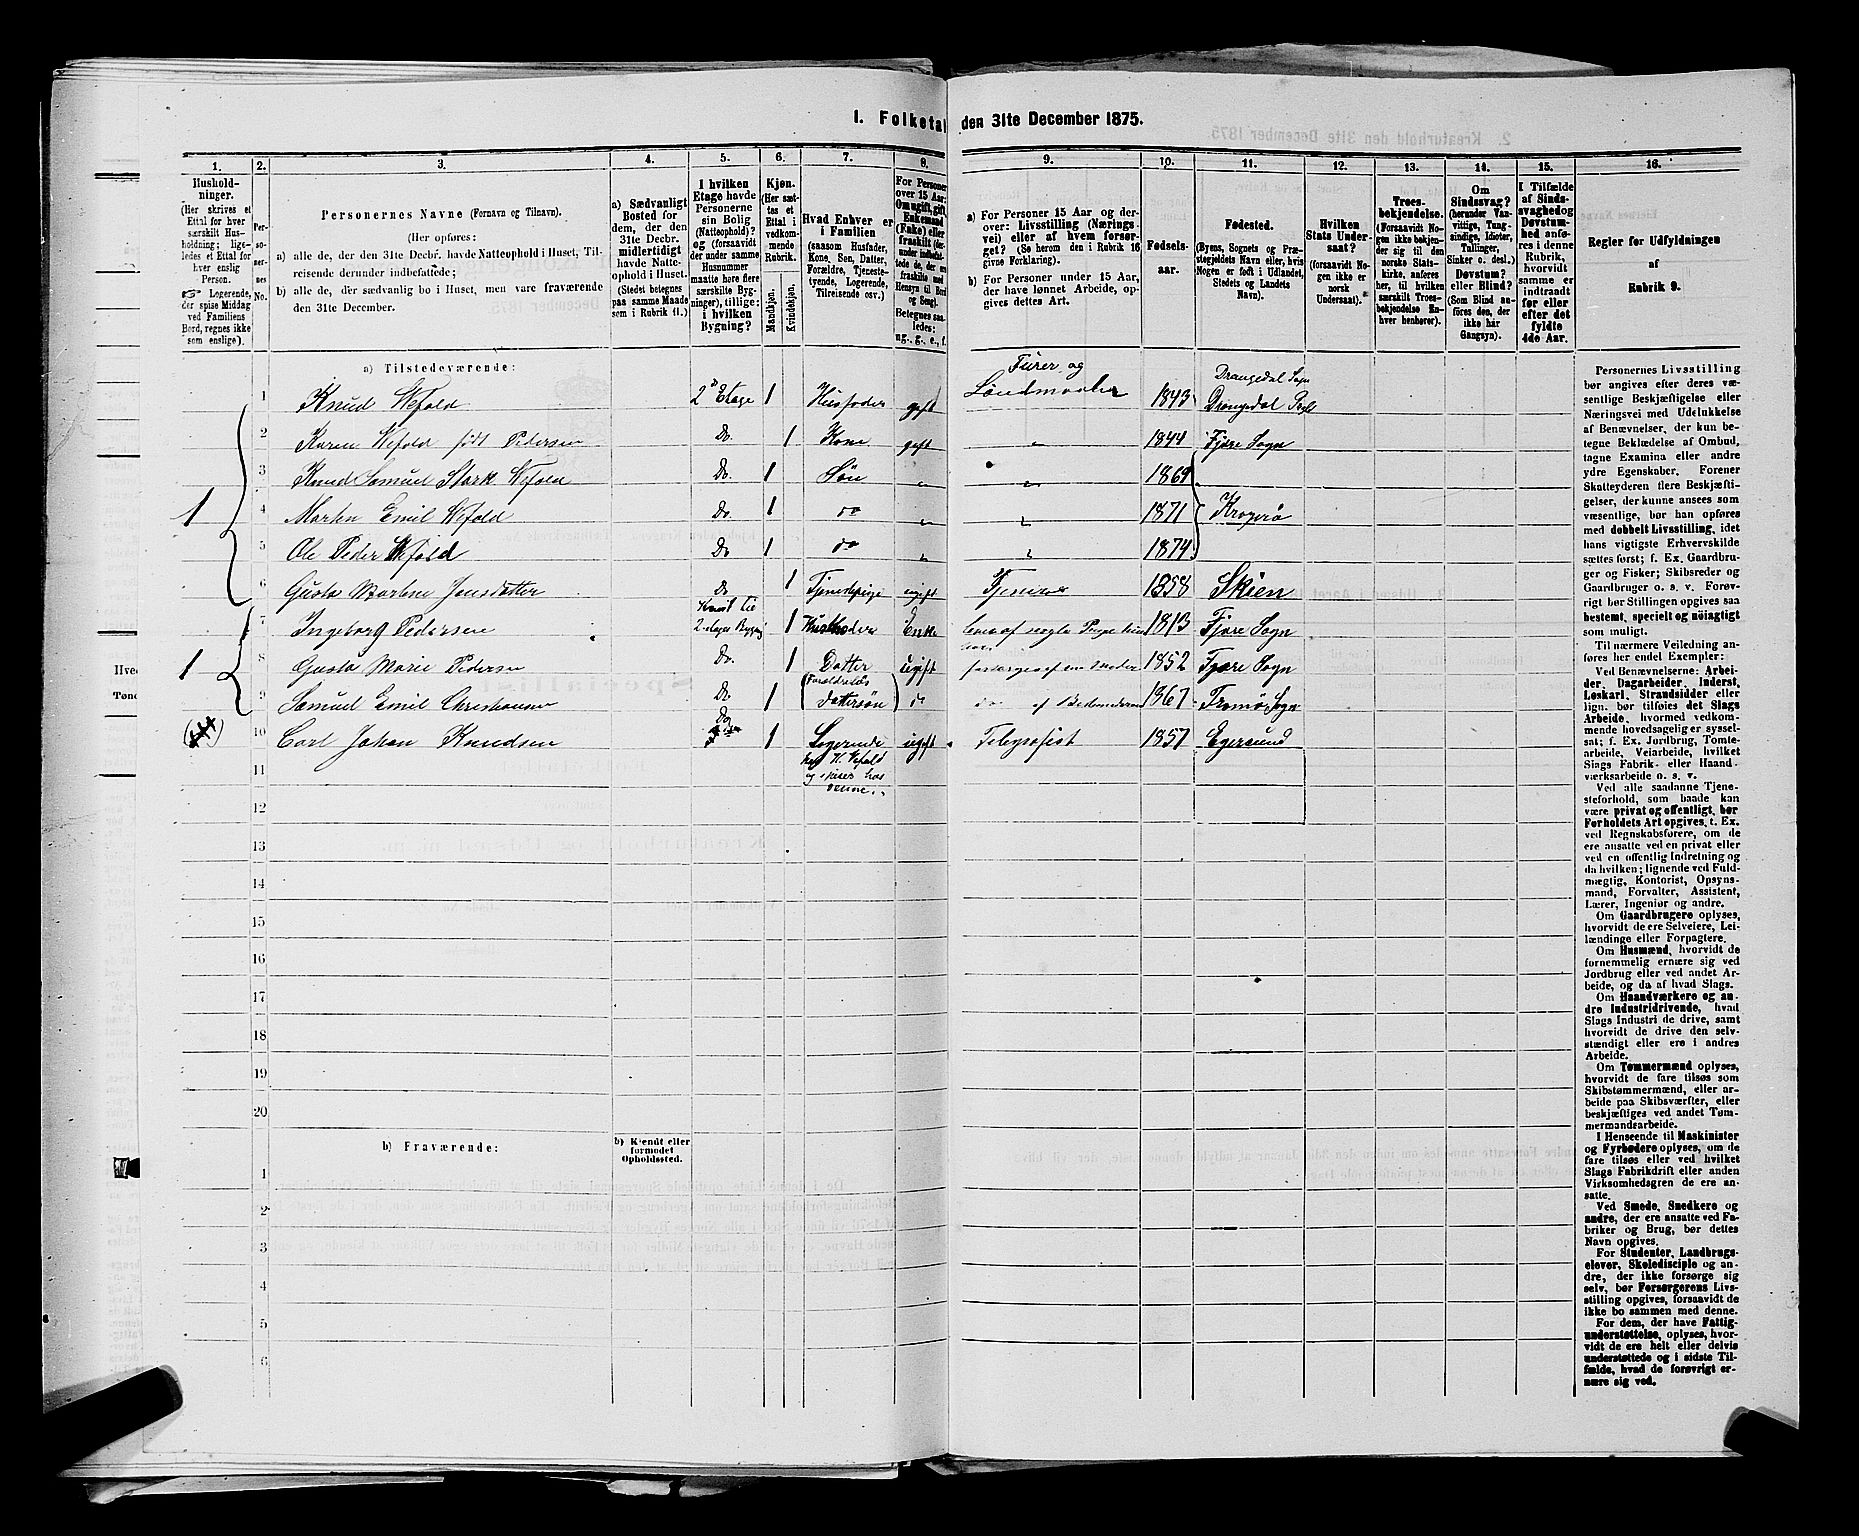 I. Folketal den 31te December 1875.
1. 2. 3. 4. 5. 6. 7. 8. 9. 10. 11. 12. 13. 14. 15. 16.
Husholdninger.
(Her skrives et
Ettal for hver
særskilt Husholdning;
ligeledes
et Ettal for
hver enslig
Person.
Logerende,
der spise Middag
ved Familiens
Bord, regnes ikke
som enslige).
Personernes No.
Personernes Navne (Fornavn og Tilnavn).
(Her opføres:
a) alle de, der den 31te Decbr. havde Natteophold i Huset, Tilreisende
derunder indbefattede;
b) alle de, der sædvanlig bo i Huset, men vare fraværende
den 31te December.
a) Sædvanligt
Bosted for
dem, der den
31te Decbr.
midlertidigt
havde Natteophold
i Huset.
(Stedet betegnes
paa samme Maade
som i Rubrik 11.)
I hvilken
Etage havde
Personerne
sin Bolig
(Natteophold)?
og (forsaavidt
der under samme
Husnummer
maatte høre flere
særskilte Bygninger),
tillige:
i hvilken
Bygning?
Kjøn.
(Her sættes
et
Ettal i
vedkommende
Rubrik.
Mandkjøn.
Kvindekjøn.
Hvad Enhver er
i Familien
(saasom Husfader,
Kone, Søn, Datter,
Forældre, Tjenestetyende,
Logerende,
Tilreisende osv.)
For Personer
over 15 Aar:
Om ugift, gift,
Enkemand
(Enke) eller
fraskilt
Betegnes saaledes:
ug., g., e., f.
a) For Personer 15 Aar og derover:
Livsstilling (Næringsvei)
eller af hvem forsørget?
(Se herom den i Rubrik 16
givne Forklaring).
b) For Personer under 15 Aar,
der have lønnet Arbeide, opgives
dettes Art.
Fødselsaar.
Fødested.
(Byens, Sognets og Præstegjeldets
Navn eller, hvis
Nogen er født i Udlandet,
Stedets og Landets
Navn).
Hvilken
Stats Undersaat?
(forsaavidt Nogen
ikke er
norsk
Undersaat).
Troesbekjendelse.
(Forsaavidt Nogen
ikke bekjender
sig til den
norske Statskirke,
anføres
her, til hvilken
særskilt Troesbekjendelse
Enhver
henhører).
Om
Sindssvag?
(herunder Vanvittige,
Tungsindige,
Idioter,
Tullinger,
Sinker o. desl.)
Døvstum?
eller Blind?
(Som Blind anføres
den, der
ikke har
Gangsyn).
I Tilfælde
af Sindssvaghed
og
Døvstumhed
anføres
i denne
Rubrik,
hvorvidt
samme er
indtraadt
før eller
efter det
fyldte
4de Aar.
Regler for Udfyldningen
af
Rubrik 9.
a) Tilstedeværende:
1 Knud Wefold 2 Etage 1 Husfader gift Furer og Londmaaler 1843 Drangedal Sogn Drangedal Prgl
2 Karen Wefald født Pedersen Do. 1 Kone gift " 1844 Fjære Sogn
3 Knud Samuel Stark Wefald Do. 1 Søn " " 1869
1 4 Morten Emil Wefold Do. 1 do " " 1871 Kragerø
5 Ole Peder Wefold Do 1 do " " 1874
6 Gusta Martine Jonsdatter Do 1 Tjenestepige ugift Tjener 1858 Skien
7 Ingeborg Pedersen 2-etages Bygnig 1 Enke 1813 Fjære Sogn
1 8 Gusta Marie Pedersen Do. 1 Datter ugift forsørges af sin Moder 1852 Fjære Sogn
9 Samuel Emil Christiansen Do 1 (Forældreløs Dattersøn) do do af Bedstemoderen 1867 Tromø Sogn
10 Carl Johan Knudsen Do 1 Logerende ugift Telegrafist 1857 Egersund
hos K. Wefald
og spiser hos
denne.
11
12
13
14
15
16
17
18
19
20
b) Fraværende:
b) Kjendt eller
formodet
Opholdssted.
1
2
3
4
5
6
Personernes Livsstilling
bør angives efter deres væsentlige
Beskjæftigelse eller
Næringsvei med Udelukkelse
af Benævnelser, der kun betegne
Beklædelse af Ombud,
tagne Examina eller andre
ydre Egenskaber. Forener
Skatteyderen flere Beskjæftigelser,
der kunne ansees som
væsentlige, bør han opføres
med dobbelt Livsstilling, idet
hans vigtigste Erhvervskilde
sættes først; f. Ex. Gaardbruger
og Fisker; Skibsreder og
Gaardbruger o. s. v. Forøvrigt
bør Stillingen opgives saa
bestemt, specielt og nöiagtigt
som muligt.
Til nærmere Veiledning anføres
her endel Exempler:
Ved Benævnelserne: Arbeider,
Dagarbeider, Inderst,
Løskarl, Strandsidder eller
lign. bør tilføies det Slags
Arbeide, hvormed vedkommende
hovedsagelig er sysselsat;
f. Ex. Jordbrug, Tomtearbeide,
Veiarbeide, hvilket
Slags Fabrik- eller Haandværksarbeide
o. s. v.
Ved alle saadanne Tjenesteforhold,
som baade kan
være privat og offentligt, bør
Forholdets Art opgives, t. Ex.
ved Regnskabsførere, om de
ere ansatte ved en privat eller
ved en offentlig Indretning og
da hvilken; lignende ved Fuldmægtig,
Kontorist, Opsynsmand,
Forvalter, Assistent,
Lærer, Ingeniør og andre.
Om Gaardbrugere oplyses,
hvorvidt de ere Selveiere, Leilændinge
eller Forpagtere.
Om Husmænd, hvorvidt de
fornemmelig ernære sig ved
Jordbrug eller ved andet Arbeide,
og da af hvad Slags.
Om Haandværkere og andre
Industridrivende, hvad
Slags Industri de drive, samt
hvorvidt de drive den selvstændigt
eller ere i andres
Arbeide.
Om Tømmermænd oplyses,
hvorvidt de fare tilsøs som
Skibstømmermænd, eller arbeide
paa Skibsværfter, eller
beskjæftiges ved andet Tømmermandsarbeide.
I Henseende til Maskinister
og Fyrbødere oplyses, om de
fare tilsøs eller ved hvilket
Slags Fabrikdrift eller anden
Virksomhedsgren de ere ansatte.
Ved Smede, Snedkere og
andre, der ere ansatte ved Fabriker
og Brug, bør dettes
Navn opgives.
For Studenter, Landbrugselever,
Skoledisciple og andre,
der ikke forsørge sig
selv, bør Forsørgerens Livsstilling
opgives, forsaavidt de
ikke bo sammen med denne.
For dem, der have Fattigunderstøttelse,
oplyses, hvorvidt
de ere helt eller delvis
understøttede og i sidste Tilfælde,
hvad de forøvrigt ernære
sig ved.